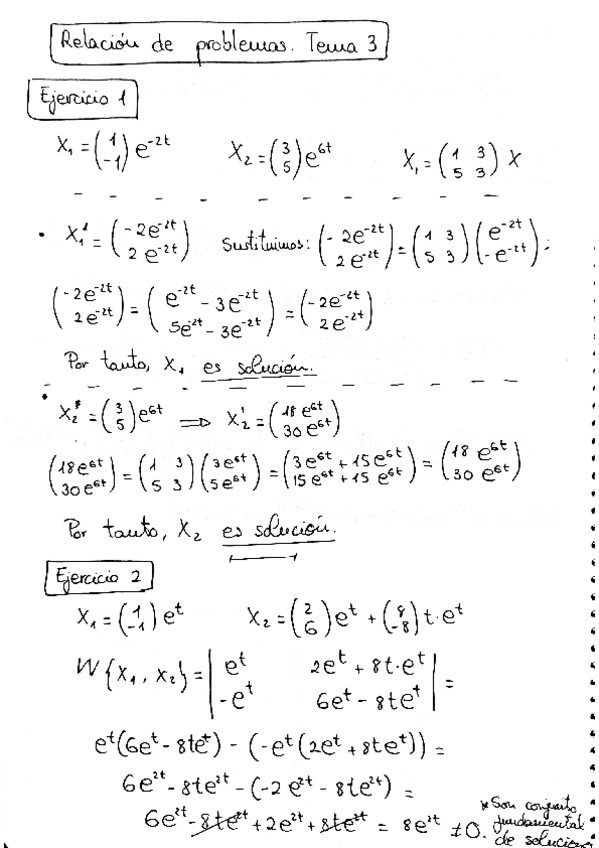 Relación de problemas. Tema 3
Ejercicio 1
X₁ = (1 ; -1) e^{-2t}    X₂ = (3 ; 5) e^{6t}    X₁ = (1 3 ; 5 3) X
• X₁' = (-2e^{-2t} ; 2e^{-2t}) Sustituimos: (-2e^{-2t} ; 2e^{-2t}) = (1 3 ; 5 3) (e^{-2t} ; -e^{-2t});
(-2e^{-2t} ; 2e^{-2t}) = (e^{-2t} - 3e^{-2t} ; 5e^{-2t} - 3e^{-2t}) = (-2e^{-2t} ; 2e^{-2t})
Por tanto, X₁ es solución.
• X₂ = (3 ; 5) e^{6t} ⟹ X₂' = (18e^{6t} ; 30e^{6t})
(18e^{6t} ; 30e^{6t}) = (1 3 ; 5 3) (3e^{6t} ; 5e^{6t}) = (3e^{6t} + 15e^{6t} ; 15e^{6t} + 15e^{6t}) = (18e^{6t} ; 30e^{6t})
Por tanto, X₂ es solución.
Ejercicio 2
X₁ = (1 ; -1) e^t    X₂ = (2 ; 6) e^t + (8 ; -8) t·e^t
W{X₁, X₂} = |e^t    2e^t + 8t·e^t ; -e^t    6e^t - 8te^t| =
e^t(6e^t - 8te^t) - (-e^t(2e^t + 8te^t)) =
6e^{2t} - 8te^{2t} - (-2e^{2t} - 8te^{2t}) =
6e^{2t} - 8te^{2t} + 2e^{2t} + 8te^{2t} = 8e^{2t} ≠ 0.
* Son conjunto
fundamental
de solucion